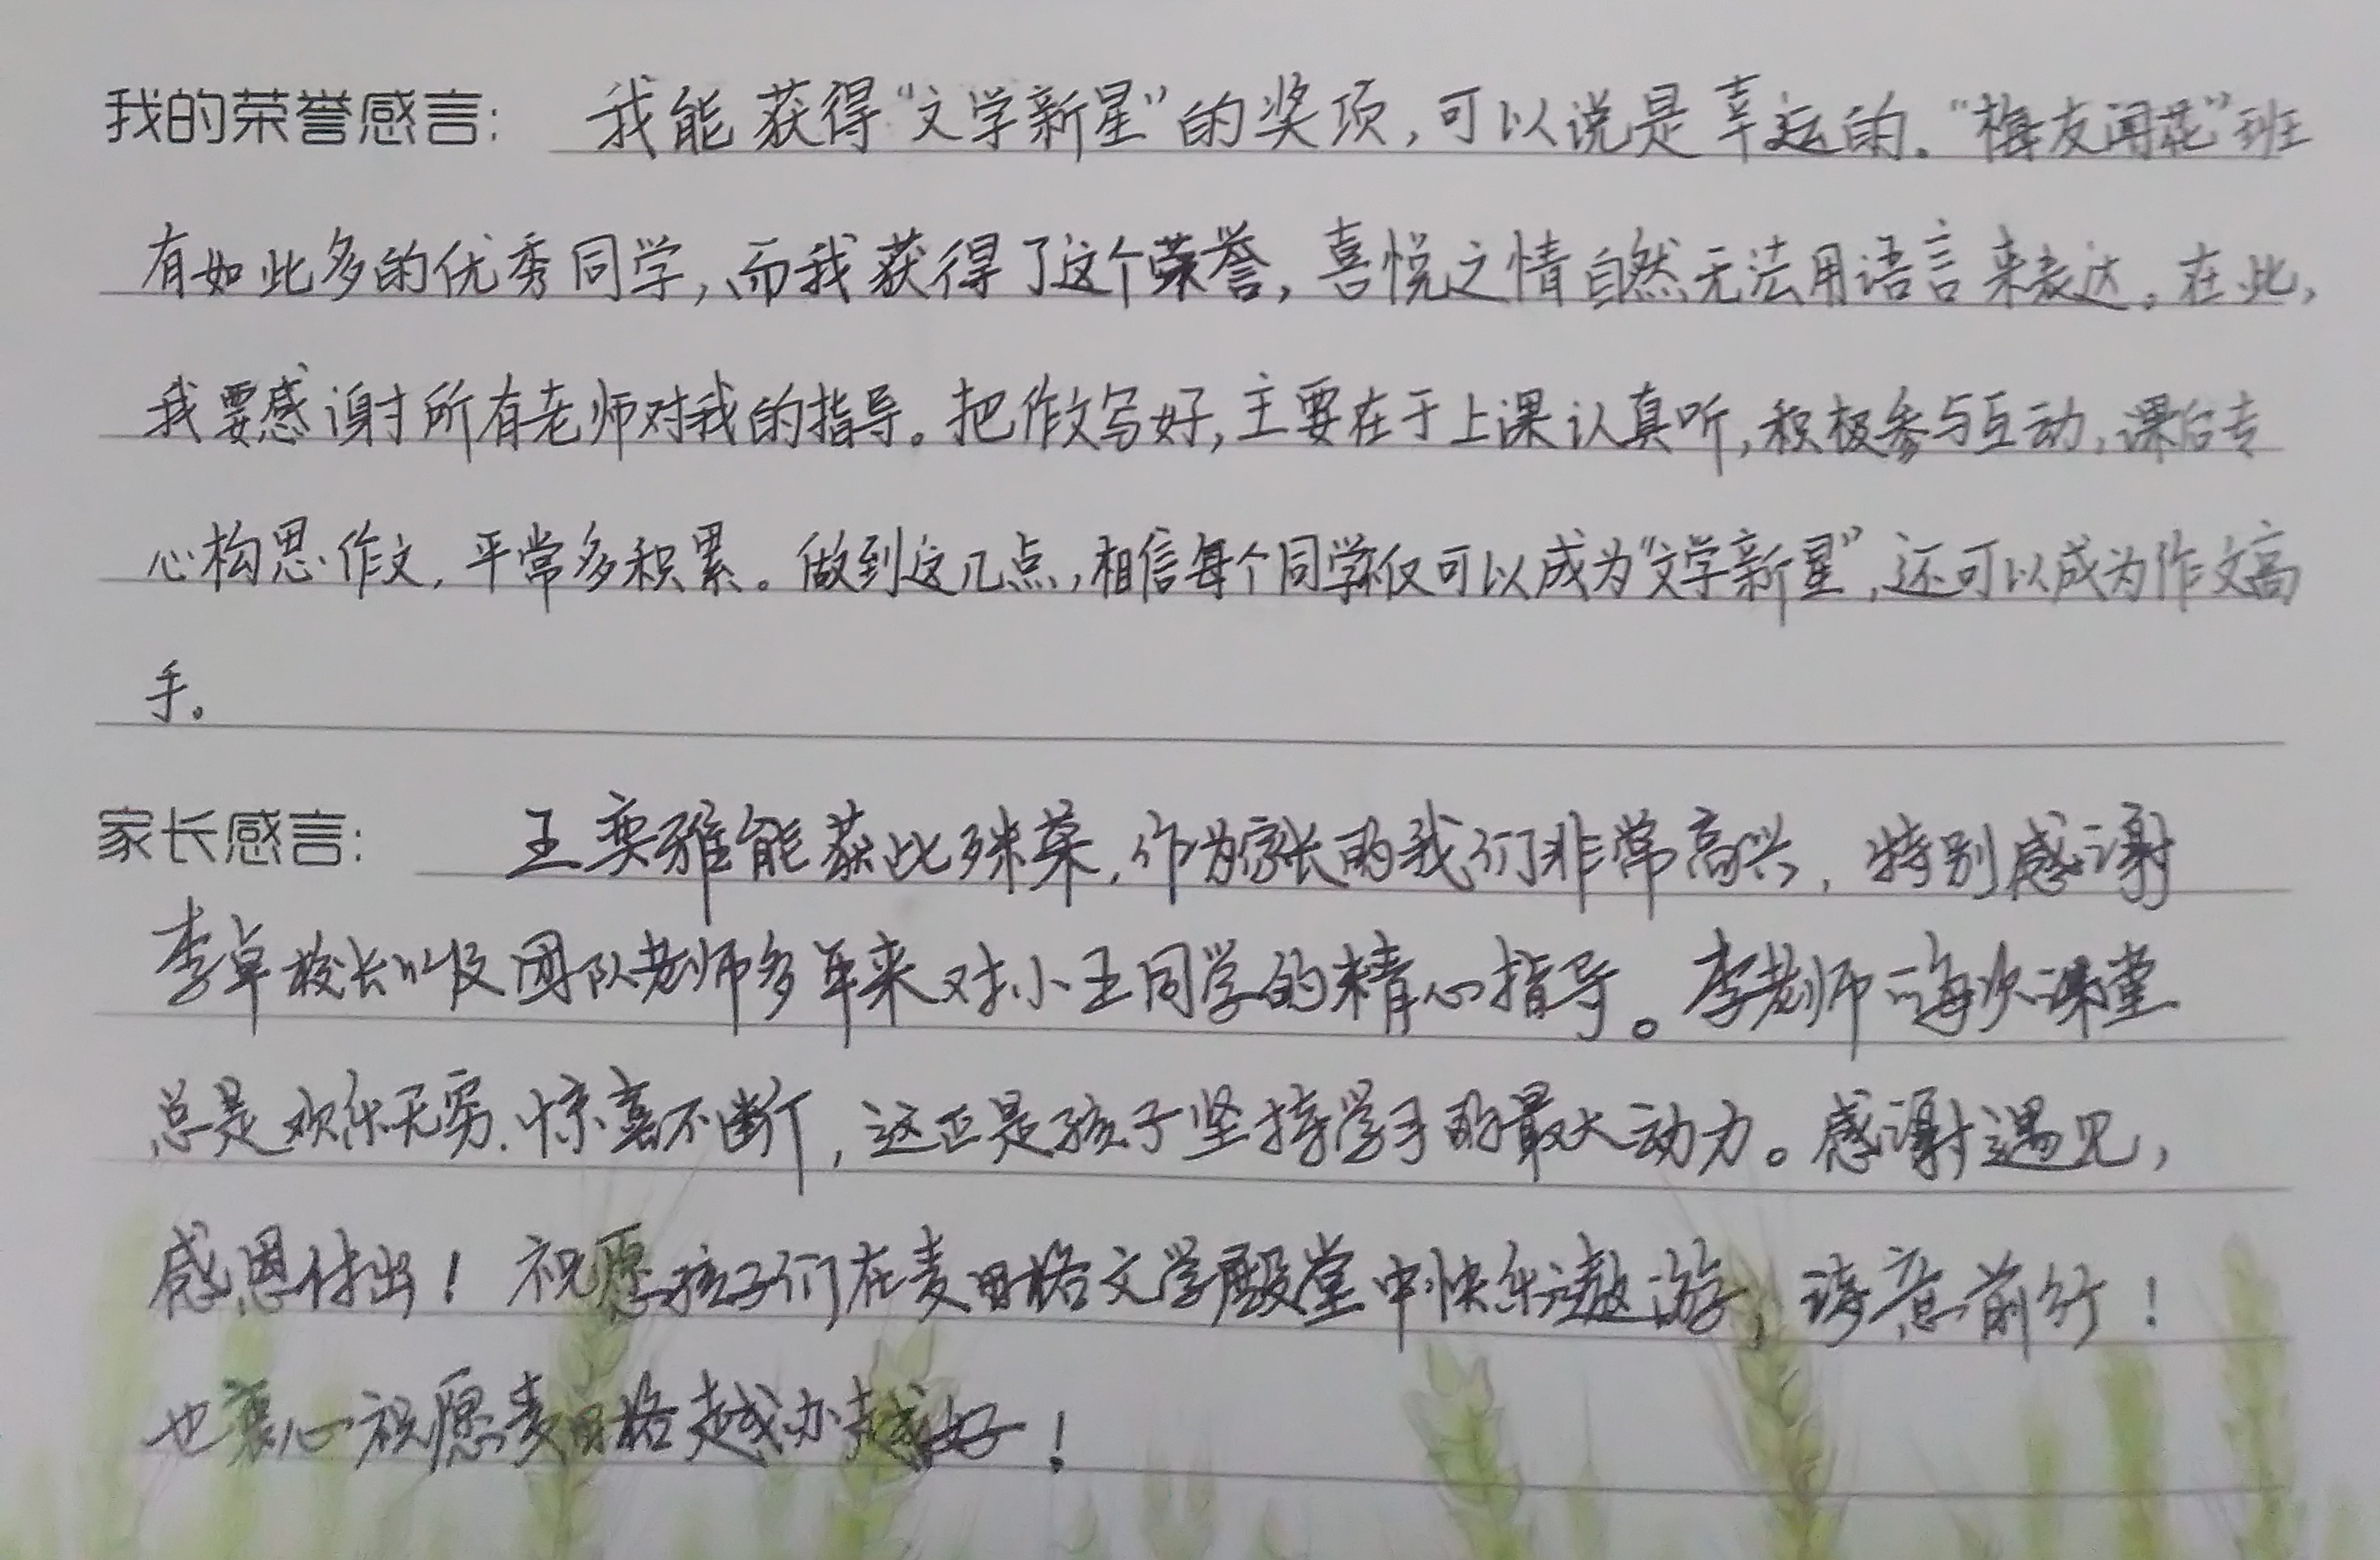 我的荣誉感言: 我能获得“文学新星”的奖项,可以说是幸运的。“梅友闻花”班
有如此多的优秀同学,而我获得了这个荣誉,喜悦之情自然无法用语言来表达。在此,
我要感谢所有老师对我的指导。把作文写好,主要在于上课认真听,积极参与互动,课后专
心构思作文,平常多积累。做到这几点,相信每个同学不仅可以成为“文学新星”,还可以成为作文高
手。
家长感言: 王奕雅能获此殊荣,作为家长的我们非常高兴,特别感谢
李卓校长以及团队老师多年来对小王同学的精心指导。李老师的每次课堂
总是欢乐无穷、惊喜不断,这正是孩子坚持学习的最大动力。感谢遇见,
感恩付出!祝愿孩子们在麦田格文学殿堂中快乐遨游,诗意前行!
也衷心祝愿麦田格越办越好!